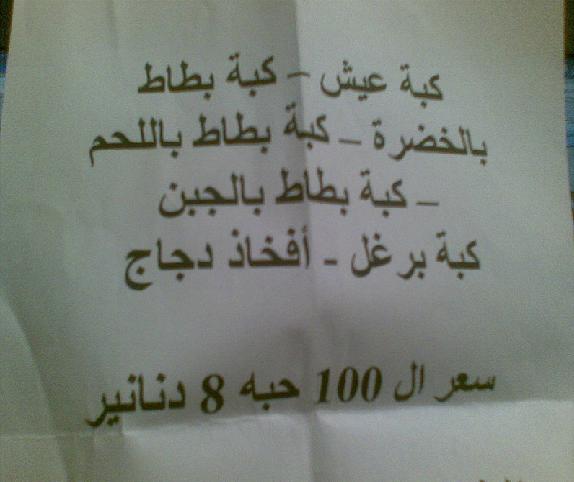 كبة عيش – كبة بطاط
بالخضرة – كبة بطاط باللحم
– كبة بطاط بالجبن
كبة برغل - أفخاذ دجاج
سعر ال 100 حبه 8 دنانير